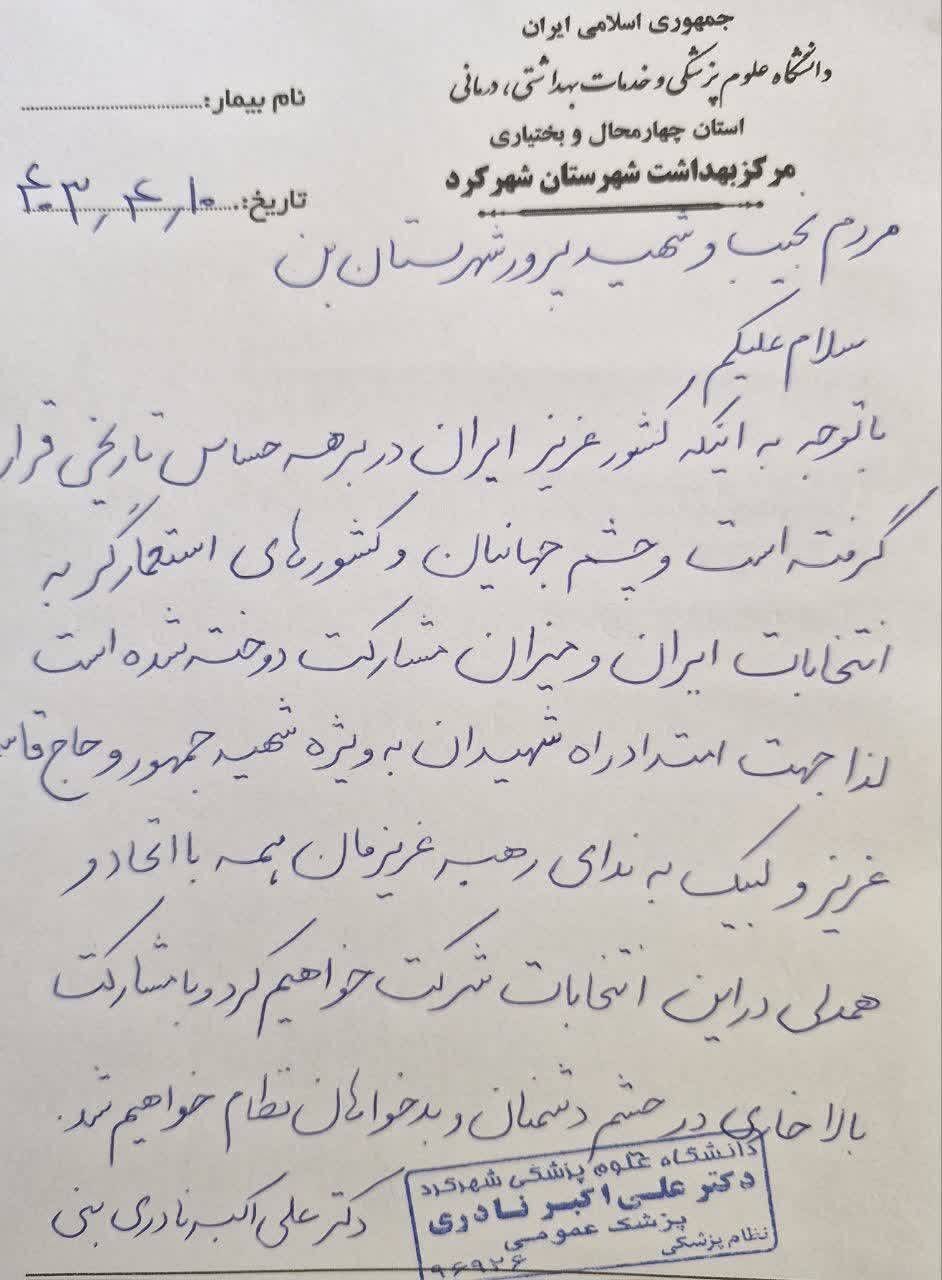 جمهوری اسلامی ایران
دانشگاه علوم پزشکی و خدمات بهداشتی، درمانی
استان چهارمحال و بختیاری
مرکز بهداشت شهرستان شهرکرد
نام بیمار:
تاریخ: ۴۰۳/۴/۱۰
مردم نجیب و شهید پرور شهرستان بن
سلام علیکم
با توجه به اینکه کشور عزیز ایران در برهه حساس تاریخی قرار
گرفته است و چشم جهانیان و کشورهای استعمارگر به
انتخابات ایران و میزان مشارکت دوخته شده است
لذا جهت امتداد راه شهیدان به ویژه شهید جمهور و حاج قاسم
عزیز و لبیک به ندای رهبر عزیزمان همه با اتحاد و
همدلی در این انتخابات شرکت خواهیم کرد و با مشارکت
بالا خاری در چشم دشمنان و بدخواهان نظام خواهیم شد.
دکتر علی اکبر نادری بنی
دانشگاه علوم پزشکی شهرکرد
دکتر علی اکبر نادری
پزشک عمومی
نظام پزشکی
۹۶۹۲۶